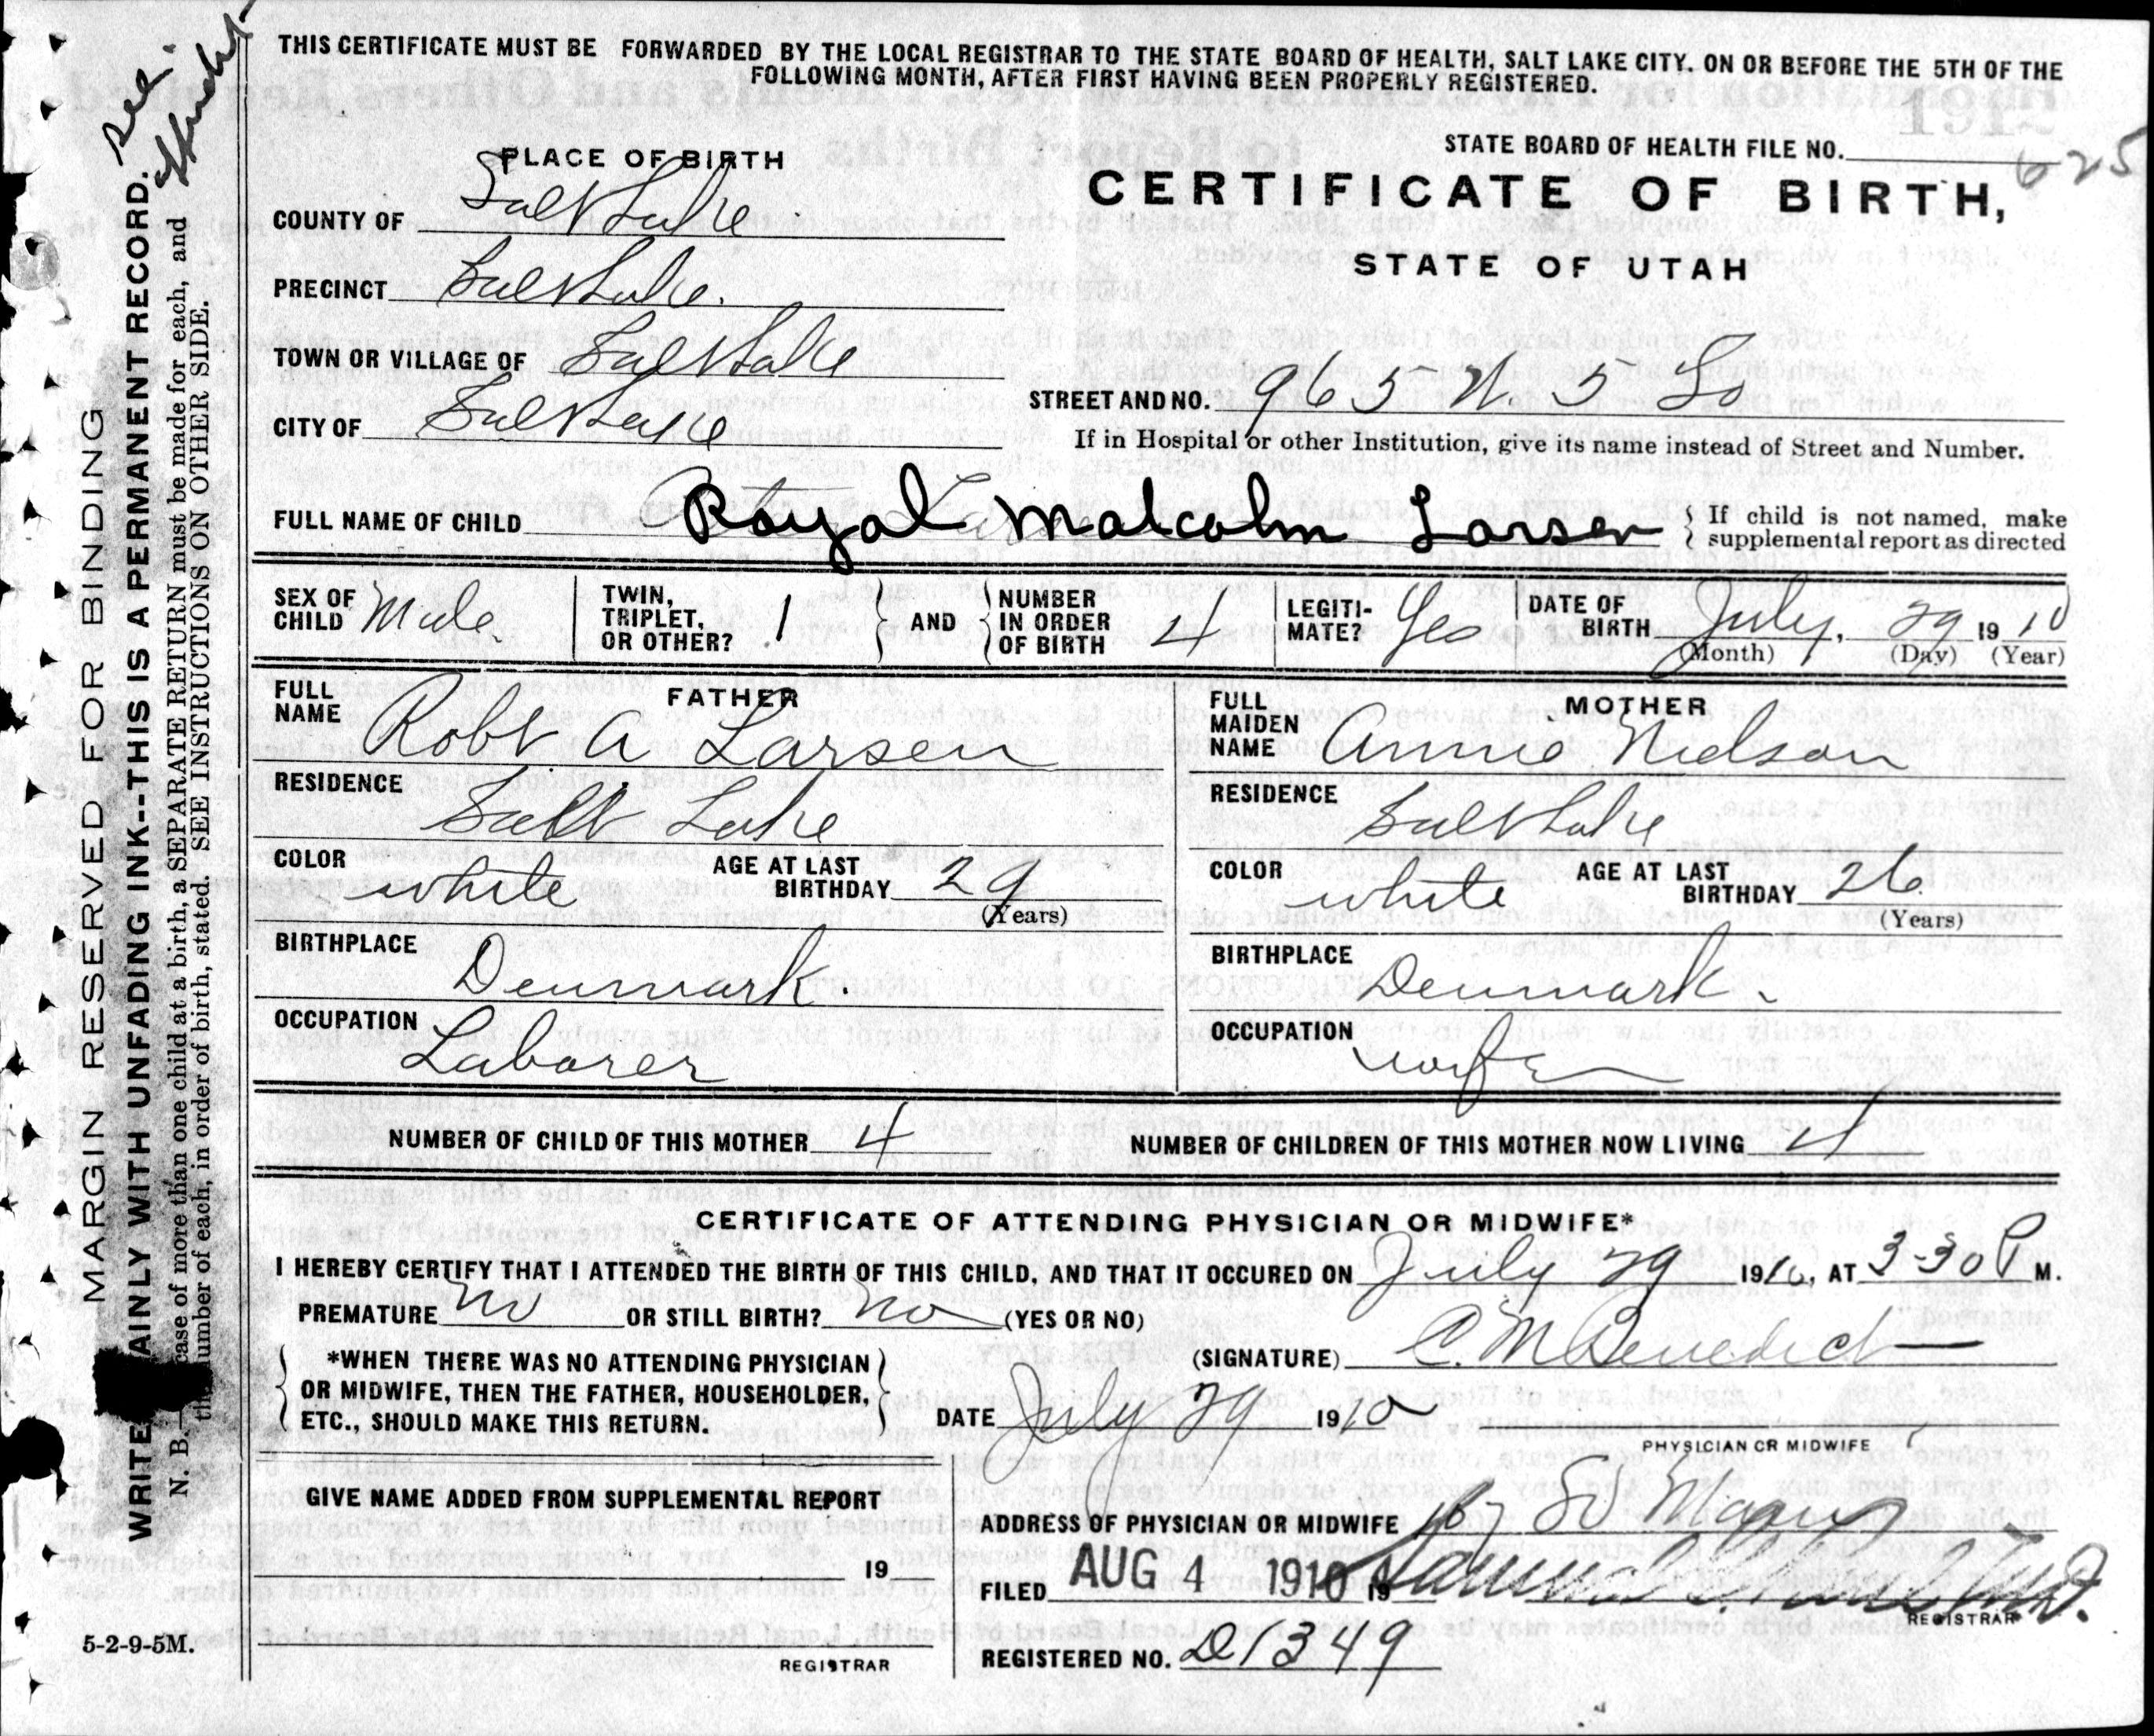 See
THIS CERTIFICATE MUST BE FORWARDED BY THE LOCAL REGISTRAR TO THE STATE BOARD OF HEALTH, SALT LAKE CITY. ON OR BEFORE THE 5TH OF THE
FOLLOWING MONTH, AFTER FIRST HAVING BEEN PROPERLY REGISTERED.
STATE BOARD OF HEALTH FILE NO. 625
PLACE OF BIRTH
CERTIFICATE OF BIRTH,
STATE OF UTAH
COUNTY OF Salt Lake
PRECINCT Salt Lake.
TOWN OR VILLAGE OF Salt Lake
CITY OF Salt Lake
STREET AND NO. 965 W. 5 So
If in Hospital or other Institution, give its name instead of Street and Number.
FULL NAME OF CHILD Royal Malcolm Larsen
If child is not named, make
supplemental report as directed
SEX OF CHILD Male
TWIN, TRIPLET, OR OTHER? 1
AND
NUMBER IN ORDER OF BIRTH 4
LEGITIMATE? Yes
DATE OF BIRTH July, 29 1910
(Month) (Day) (Year)
FATHER
FULL NAME Robt A Larsen
RESIDENCE Salt Lake
COLOR white AGE AT LAST BIRTHDAY 29
(Years)
BIRTHPLACE Denmark.
OCCUPATION Laborer
MOTHER
FULL MAIDEN NAME Annie Nielson
RESIDENCE Salt Lake
COLOR white AGE AT LAST BIRTHDAY 26
(Years)
BIRTHPLACE Denmark
OCCUPATION wife
NUMBER OF CHILD OF THIS MOTHER 4 NUMBER OF CHILDREN OF THIS MOTHER NOW LIVING 4
CERTIFICATE OF ATTENDING PHYSICIAN OR MIDWIFE*
I HEREBY CERTIFY THAT I ATTENDED THE BIRTH OF THIS CHILD, AND THAT IT OCCURED ON July 29 1910, AT 3-30 P M.
PREMATURE no OR STILL BIRTH? no (YES OR NO)
*WHEN THERE WAS NO ATTENDING PHYSICIAN
OR MIDWIFE, THEN THE FATHER, HOUSEHOLDER,
ETC., SHOULD MAKE THIS RETURN.
(SIGNATURE) C. M Benedict
DATE July 29 1910
PHYSICIAN OR MIDWIFE
GIVE NAME ADDED FROM SUPPLEMENTAL REPORT
19
REGISTRAR
ADDRESS OF PHYSICIAN OR MIDWIFE
FILED AUG 4 1910 19
REGISTRAR
REGISTERED NO. D1349
5-2-9-5M.
MARGIN RESERVED FOR BINDING
WRITE AINLY WITH UNFADING INK--THIS IS A PERMANENT RECORD.
N. B.— case of more than one child at a birth, a SEPARATE RETURN must be made for each, and
number of each, in order of birth, stated. SEE INSTRUCTIONS ON OTHER SIDE.